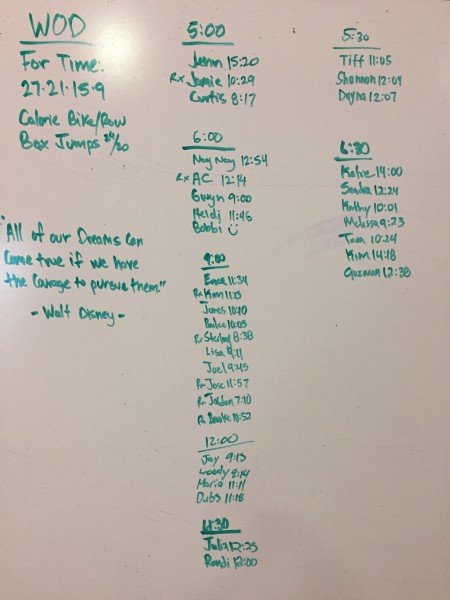 WOD
For Time:
27-21-15-9
Calorie Bike/Row
Box Jumps 24/20
"All of our Dreams can
come true if we have
the courage to pursue them."
- Walt Disney -
5:00
Jenn 15:20
Rx Jamie 10:29
Curtis 8:17
6:00
Nay Nay 12:54
Rx AC 12:14
Gwyn 9:00
Heidi 11:46
Bobbi
9:00
11:34
Rx Kim
James 10:10
10:05
Rx Sterling 8:38
Lisa 9:11
Joel 9:45
Rx Jose 11:57
Rx Jordan 7:10
Rx Brooke 10:52
12:00
Jay 9:13
Woody 8:14
Maria 11:11
Dubs 11:18
4:30
Julia 12:25
Randi 12:00
5:30
Tiff 11:05
Shannon 12:09
Dayna 12:07
6:30
Katie 14:00
Sandra 12:24
Kathy 10:01
Melissa 9:23
Tara 10:24
Kim 14:18
Guzman 12:38